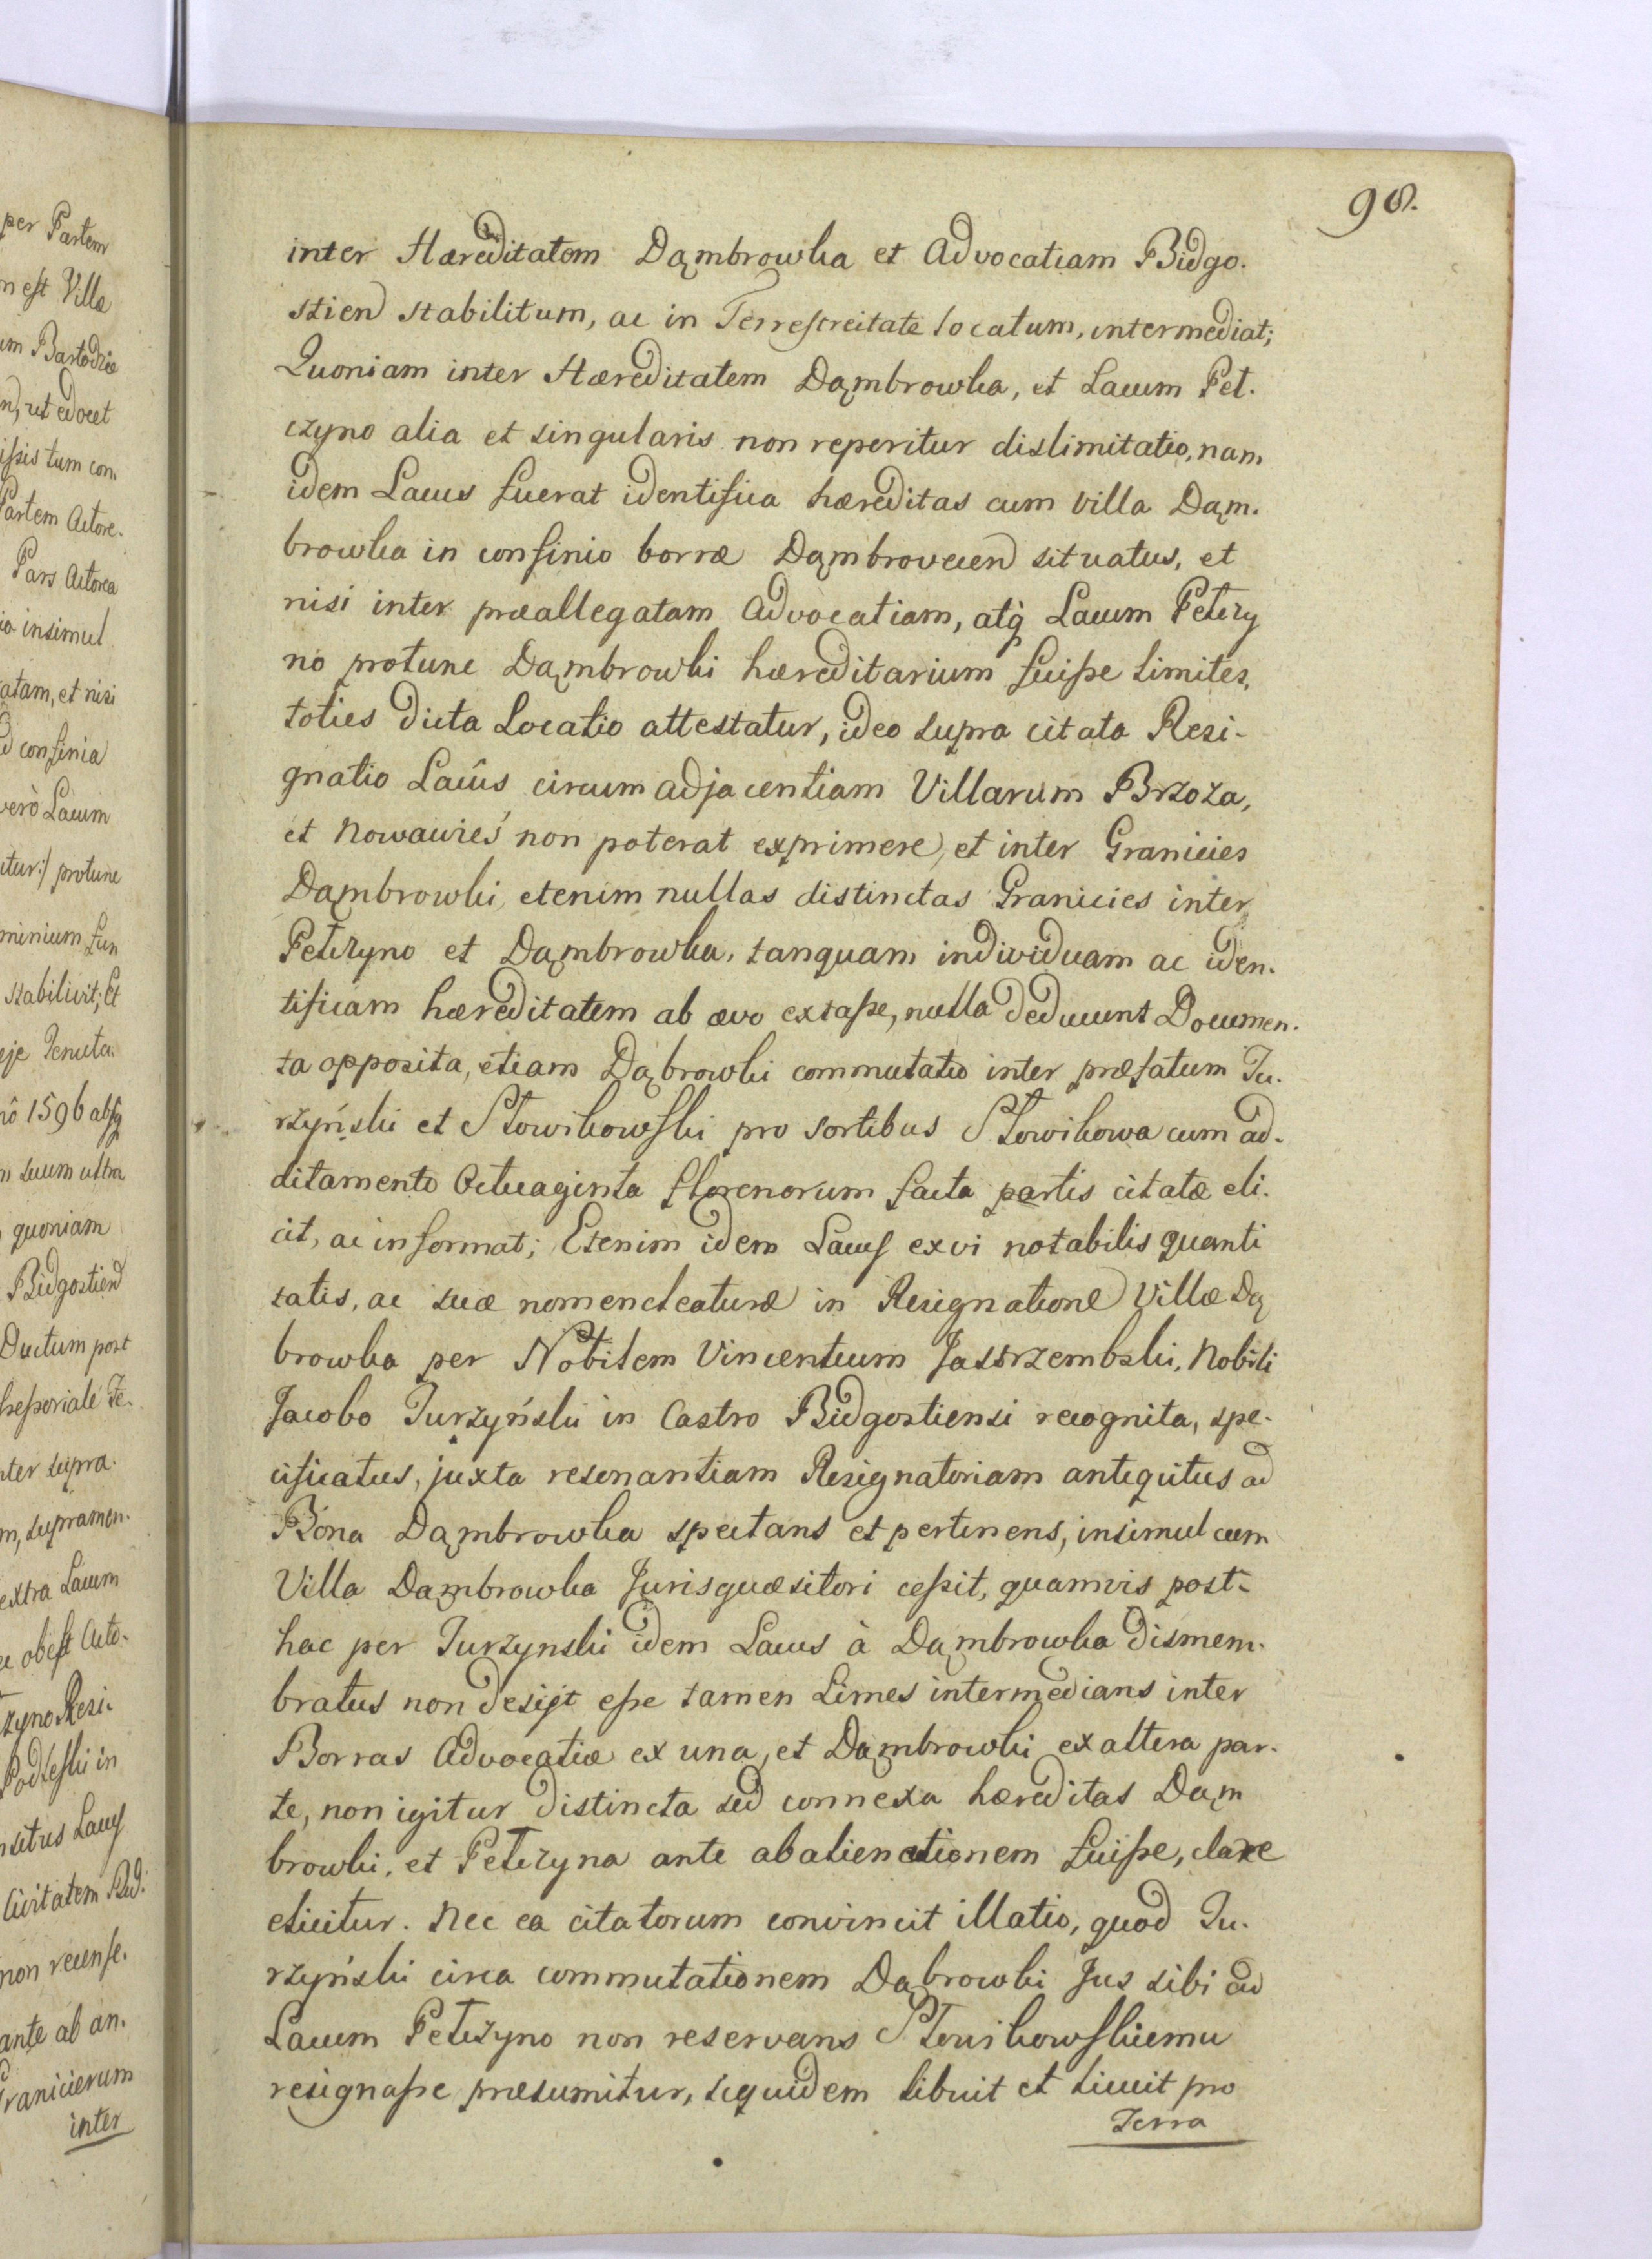 98.
inter Hæreditatem Dąmbrowka et Advocatiam Bidgo.
stien stabilitum, ac in Terrestreitate locatum, intermediat;
Quoniam inter Hæreditatem Dąmbrowka, et Lacum Pet.
czyno alia et singularis non reperitur dislimitatio, nam
idem Lacus fuerat identifica hæreditas cum villa Dąm.
browka in confinio borræ Dąmbrovecien situatus, et
nisi inter præallegatam Advocatiam, atq̀ Lacum Petczy
no protunc Dąmbrowki hæreditarium fuiße limites,
toties dicta Locatio attestatur, ideo supra citata Resi-
gnatio Lacûs circum adjacentiam Villarum Brzoza,
et Nowawieś non poterat exprimere, et inter Granicies
Dąmbrowki, etenim nullas distinctas Granicies inter
Petczyno et Dąmbrowka, tanquam individuam ac iden.
tificam hæreditatem ab ævo extaße, nulla deducunt Documen.
ta opposita, etiam Dąbrowki commutatio inter præfatum Tu.
rzyński et Słowikowski pro sortibus Słowikowa cum ad.
ditamento Octuaginta florenorum facta partis citatæ eli.
cit, ac informat; Etenim idem Lacus ex vi notabilis quanti
tatis, ac suæ nomencleaturæ in Resignatione Villæ Dą
browka per Nobilem Vincentium Jastrzembski, Nobili
Jacobo Turzyński in Castro Bidgostiensi recognita, spe.
cificatus, juxta resonantiam Resignatoriam antiquitus ad
Bona Dąmbrowka spectans et pertinens, insimul cum
Villa Dąmbrowka Jurisquæsitori ceßit, quamvis post-
hac per Turzynski idem Lacus à Dąmbrowka dismem.
bratus non desijt eße tamen Limes intermedians inter
Borras Advocatiæ ex una, et Dąmbrowki ex altera par.
te, non igitur distincta sed connexa hæreditas Dąm
browki, et Petczyna ante abalienationem fuiße, clare
elicitur. Nec ea citatorum convincit illatio, quod Tu.
rzyński circa commutationem Dąbrowki Jus sibi ad
Lacum Petczyno non reservans Słowikowskiemu
resignaße præsumitur, siquidem libuit et licuit pro
Terra